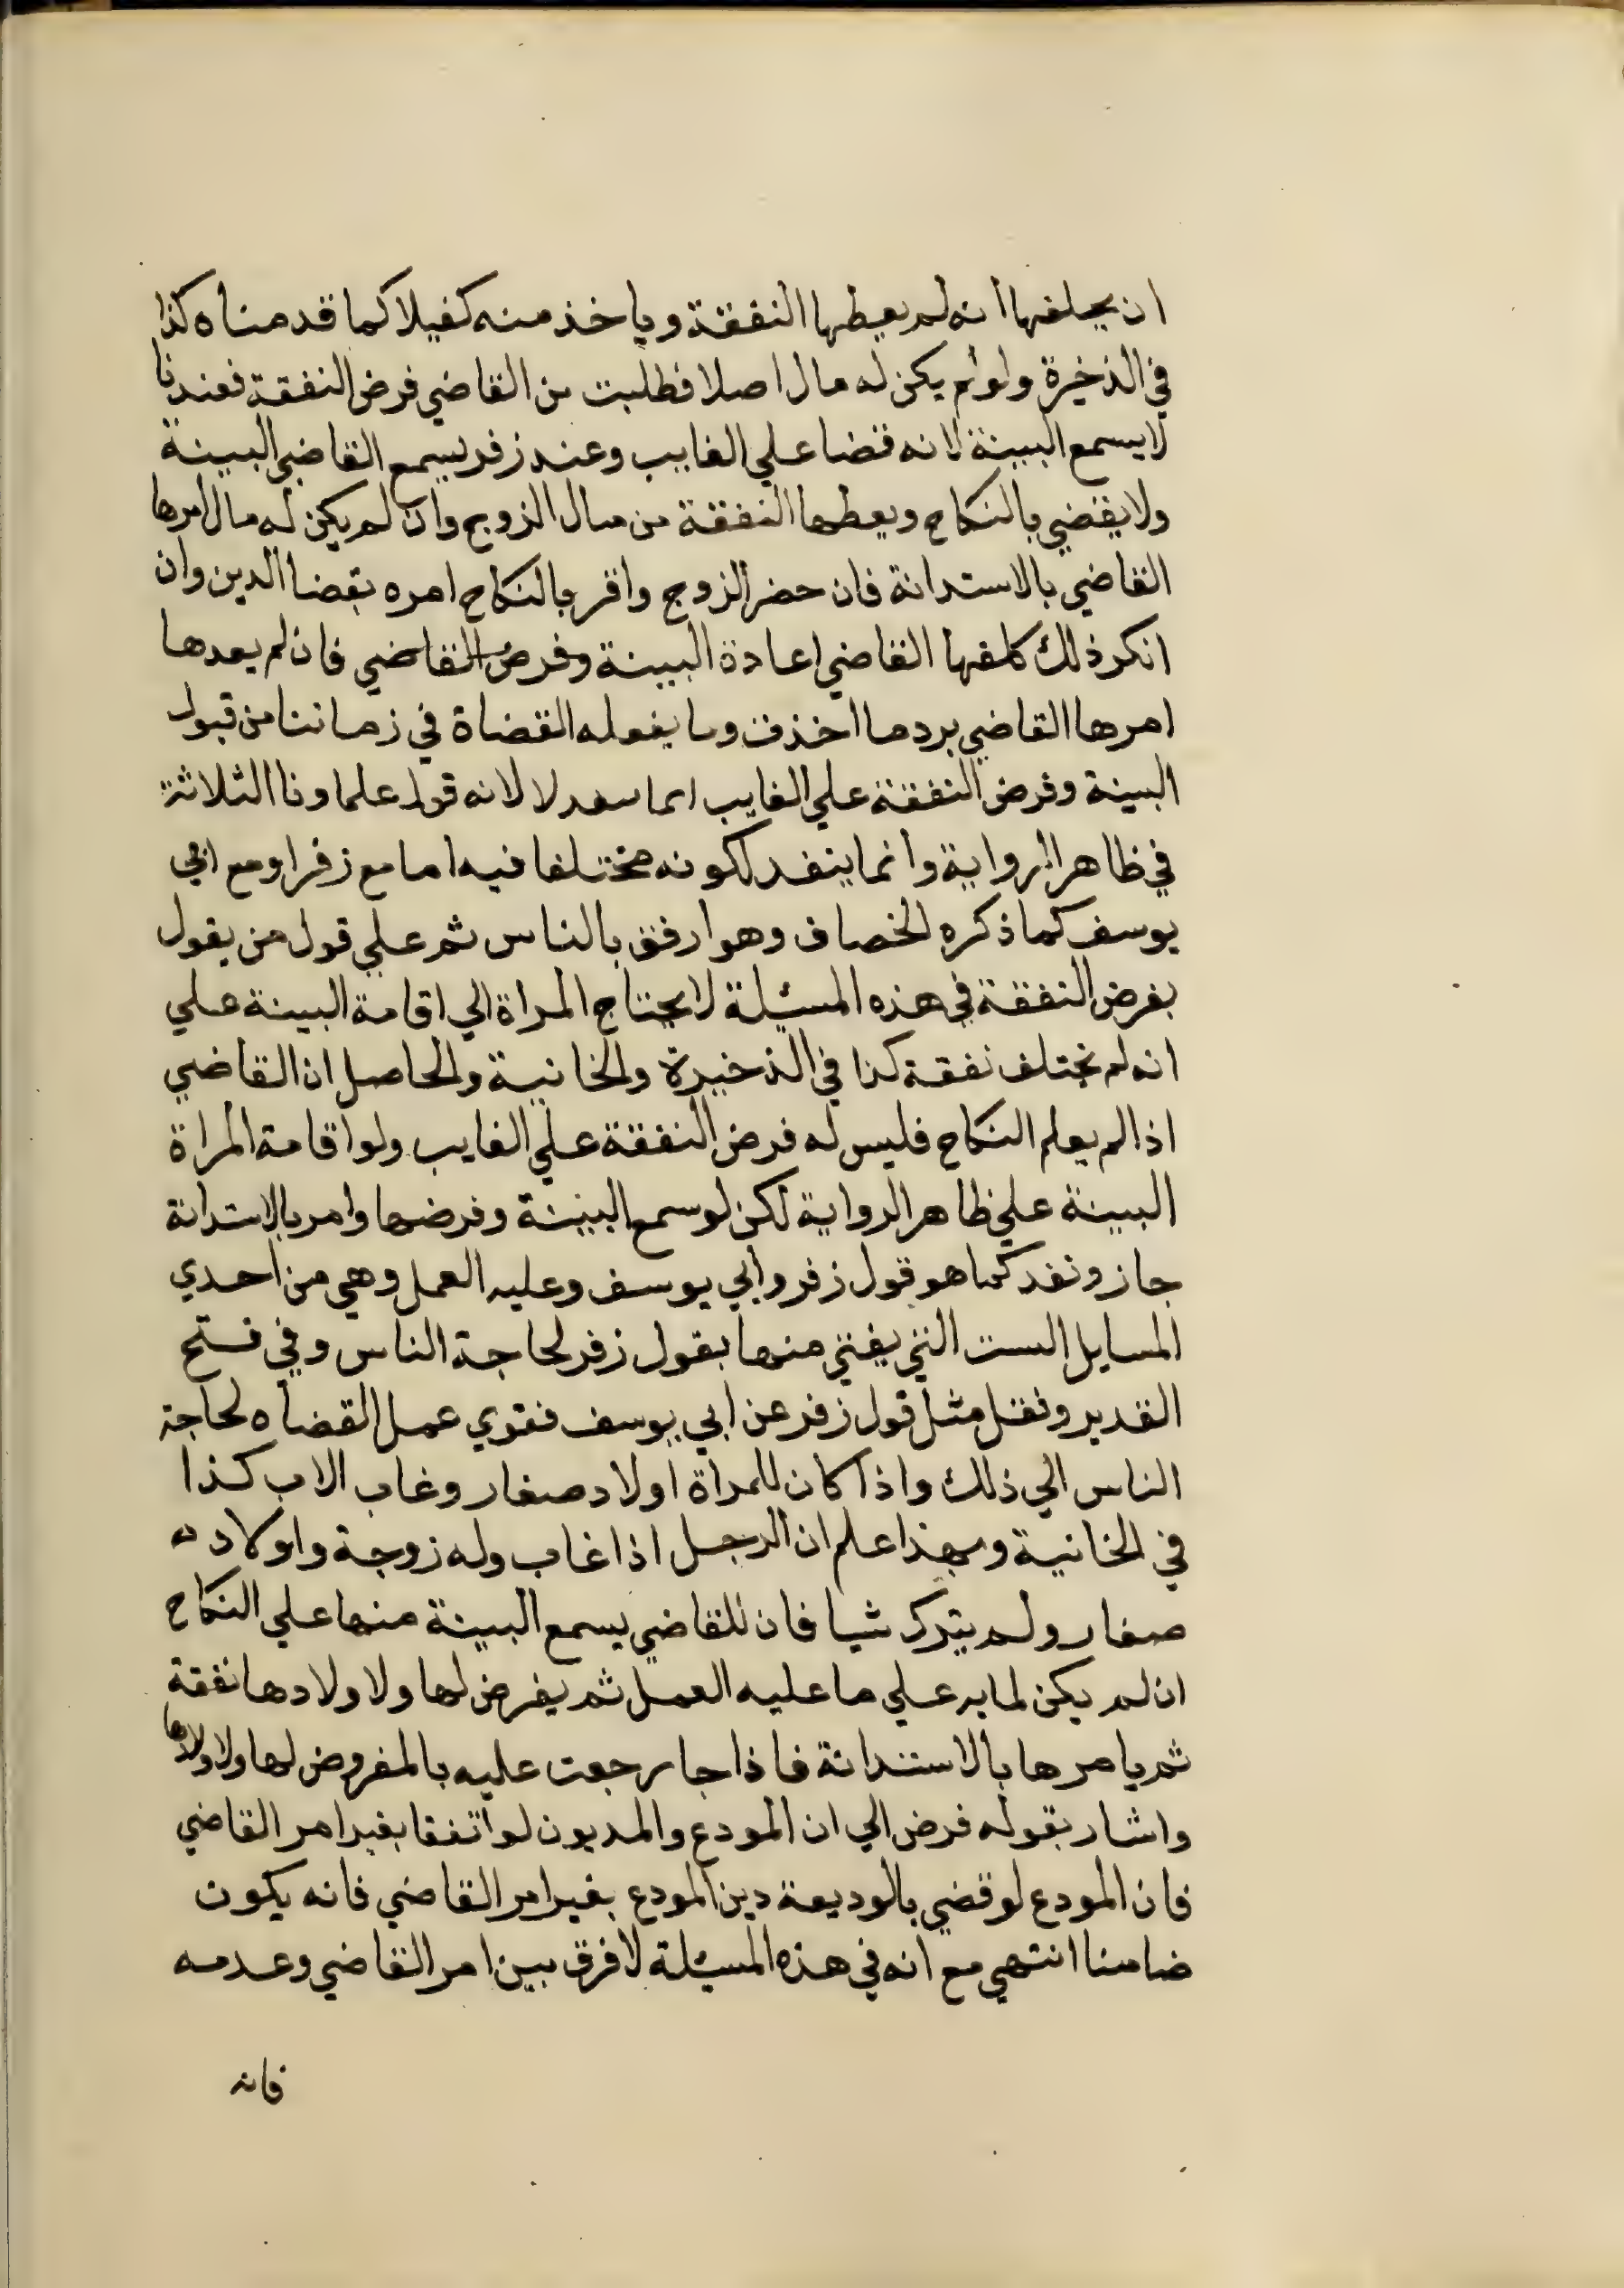 ان يحلفها انه لم يعطها النفقة وياخذ منه كفيلا كما قدمناه كذا
في الذخيرة ولو لم يكن له مال اصلا فطلبت من القاضي فرض النفقة فعندنا
لا يسمع البينة لانه قضا علي الغايب وعند زفر يسمع القاضي البينة
ولا يقضي بالنكاح ويعطها النفقة من مال الزوج وان لم يكن له مال امرها
القاضي بالاستدانة فان حضر الزوج واقر بالنكاح امره بقضا الدين وان
انكر ذلك كلفها القاضي اعادة البينة وفرض القاضي فان لم يعدها
امرها القاضي برد ما اخذت وما يفعله القضاة في زماننا من قبول
البينة وفرض النفقة علي الغايب انما لا لانه قول علماونا الثلاثة
في ظاهر الرواية وانما ينفد لكونه مختلفا فيه اما مع زفر او مع ابي
يوسف كما ذكره الخصاف وهو ارفق بالناس ثم علي قول من يقول
بفرض النفقة في هذه المسئلة لا يحتاج المراة الي اقامة البينة علي
انه لم تختلف نفقة كذا في الذخيرة والخانية والحاصل ان القاضي
اذا لم يعلم النكاح فليس له فرض النفقة علي الغايب ولو اقامة المراة
البينة علي ظاهر الرواية لكن لو سمع البينة وفرضها وامر بالاستدانة
جاز ونفد كما هو قول زفر وابي يوسف وعليه العمل وهي من احدي
المسايل الست التي يفتي منها بقول زفر لحاجة الناس وفي فتح
القدير ونقل مثل قول زفر عن ابي يوسف فقوي عمل القضاه لحاجة
الناس الي ذلك واذا كان للمراة اولاد صغار وغاب الاب كذا
في الخانية وبهذا علم ان الرجل اذا غاب وله زوجة واولاد
صغار ولم يترك شيا فان للقاضي يسمع البينة منها علي النكاح
ان لم يكن لما به علي ما عليه العمل ثم يفرض لها ولاولادها نفقة
ثم يامرها بالاستدانة فاذا جا رجعت عليه بالمفروض لها ولاولادها
واشار بقوله فرض الي ان المودع والمديون لو اتفقا بغير امر القاضي
فان المودع لو قضي بالوديعة دين المودع بغير امر القاضي فانه يكون
ضامنا انتهي مع انه في هذه المسئلة لا فرق بين امر القاضي وعدمه
فانه